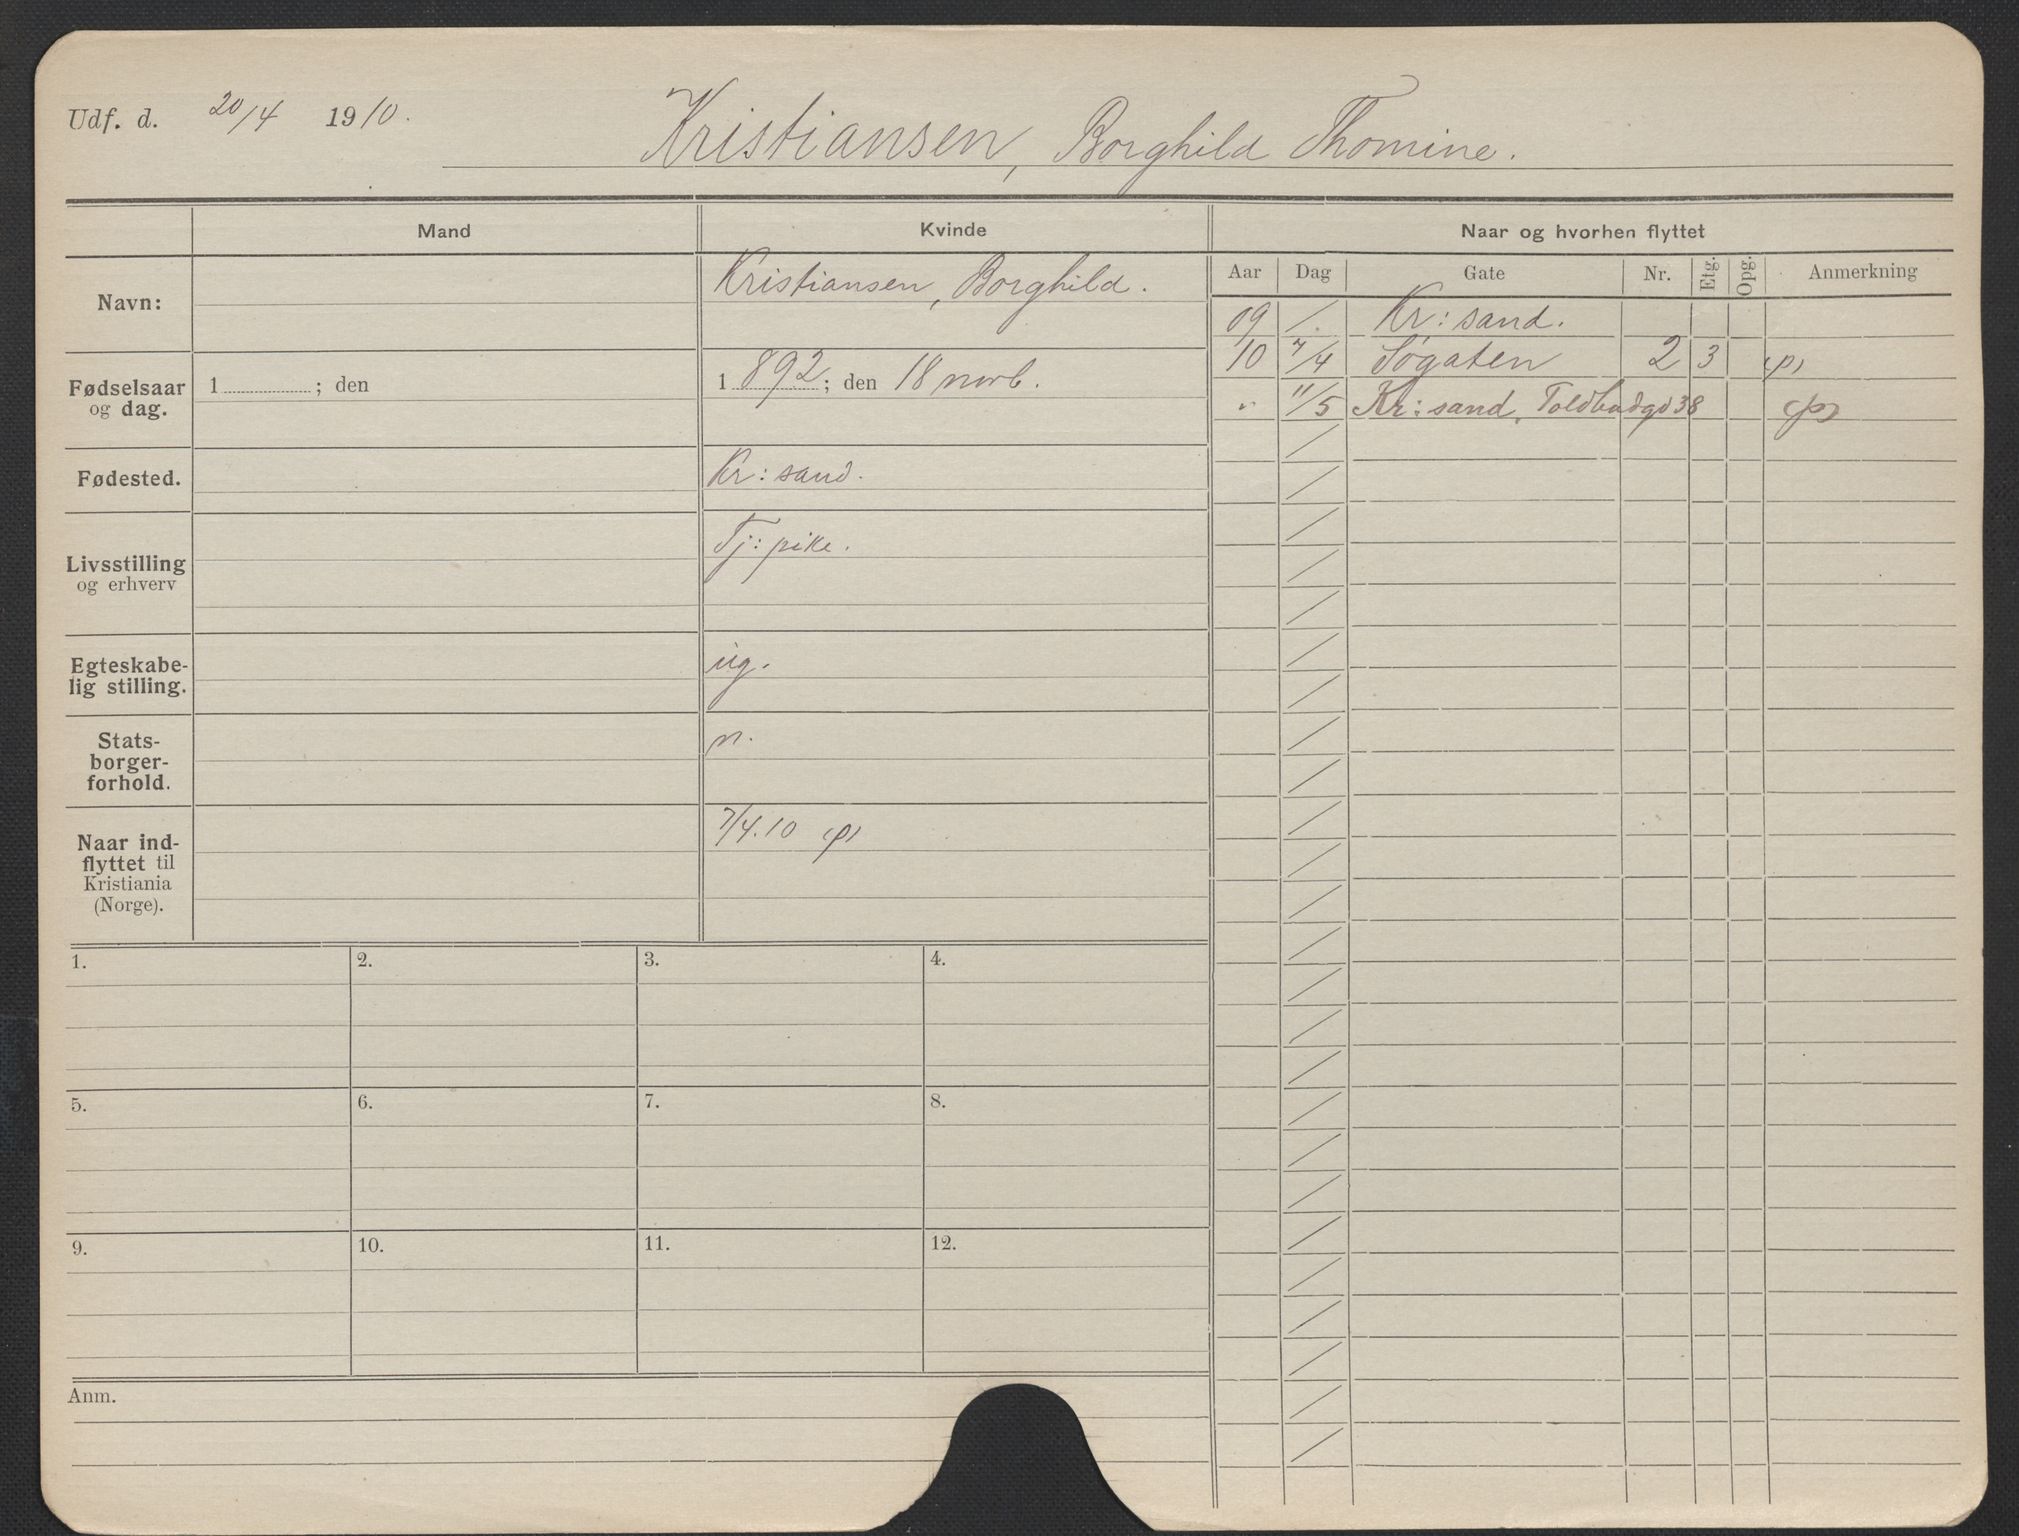 Udf. d. 20/4 1910.
Kristiansen, Borghild Thomine.
Mand
Kvinde
Navn:
Kristiansen, Borghild.
Fødselsaar og dag.
1 ; den
1 892 ; den 18 novb.
Fødested.
Kr: sand.
Livsstilling og erhverv
Tj: pike.
Egteskabe-
lig stilling.
ug.
Stats-
borger-
forhold.
n.
Naar ind-
flyttet til
Kristiania
(Norge).
7/4.10 (p)
1. 2. 3. 4.
5. 6. 7. 8.
9. 10. 11. 12.
Anm.
Naar og hvorhen flyttet
Aar Dag Gate Nr. Etg. Opg. Anmerkning
09 / . Kr: sand.
10 7/4 Søgaten 2 3 (p)
" 11/5 Kr: sand, Toldbodgd 38 (p)